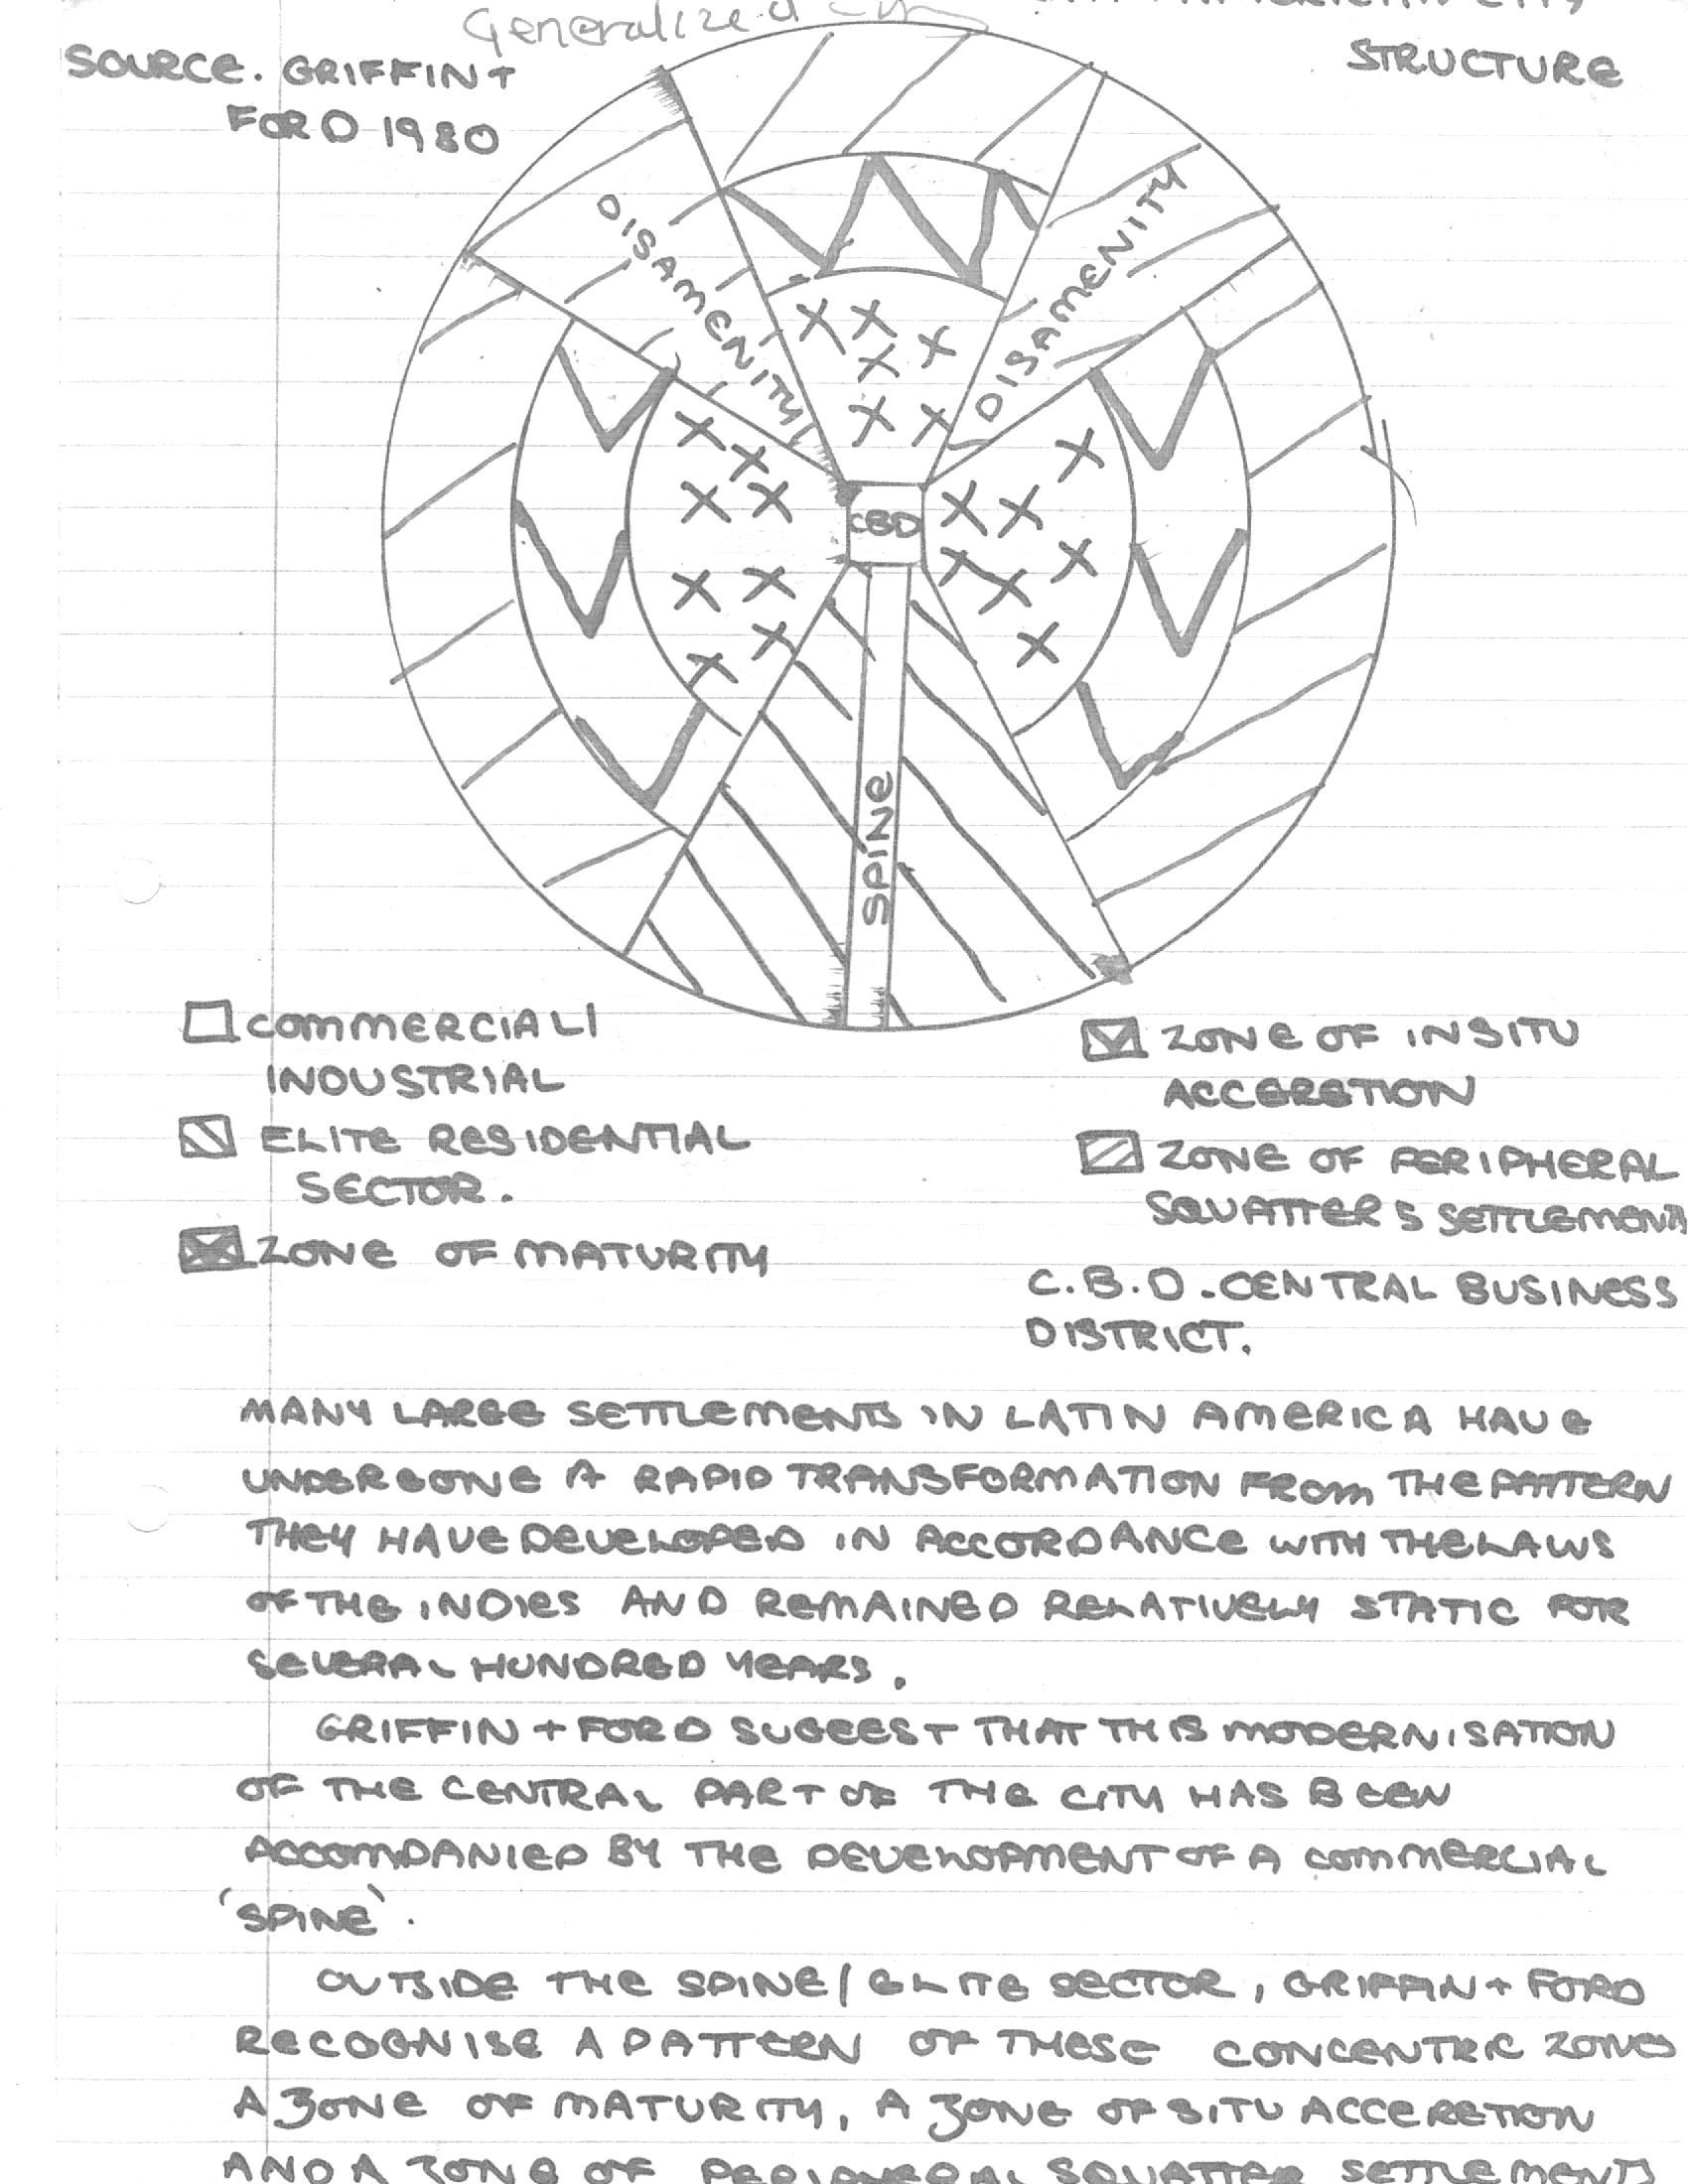 Generalized
STRUCTURE
SOURCE. GRIFFIN +
FORD 1980
DISAMENITY
DISAMENITY
CBD
SPINE
COMMERCIAL/
INDUSTRIAL
ELITE RESIDENTIAL
SECTOR.
ZONE OF MATURITY
ZONE OF INSITU
ACCERETION
ZONE OF PERIPHERAL
SQUATTERS SETTLEMENTS
C.B.D. - CENTRAL BUSINESS
DISTRICT.
MANY LARGE SETTLEMENTS IN LATIN AMERICA HAVE
UNDERGONE A RAPID TRANSFORMATION FROM THE PATTERN
THEY HAVE DEVELOPED IN ACCORDANCE WITH THE LAWS
OF THE INDIES AND REMAINED RELATIVELY STATIC FOR
SEVERAL HUNDRED YEARS.
GRIFFIN + FORD SUGGEST THAT THIS MODERNISATION
OF THE CENTRAL PART OF THE CITY HAS BEEN
ACCOMPANIED BY THE DEVELOPMENT OF A COMMERCIAL
'SPINE'.
OUTSIDE THE SPINE/ELITE SECTOR, GRIFFIN + FORD
RECOGNISE A PATTERN OF THESE CONCENTRIC ZONES
A ZONE OF MATURITY, A ZONE OF SITU ACCERETION
AND A ZONE OF PERIPHERAL SQUATTER SETTLEMENTS